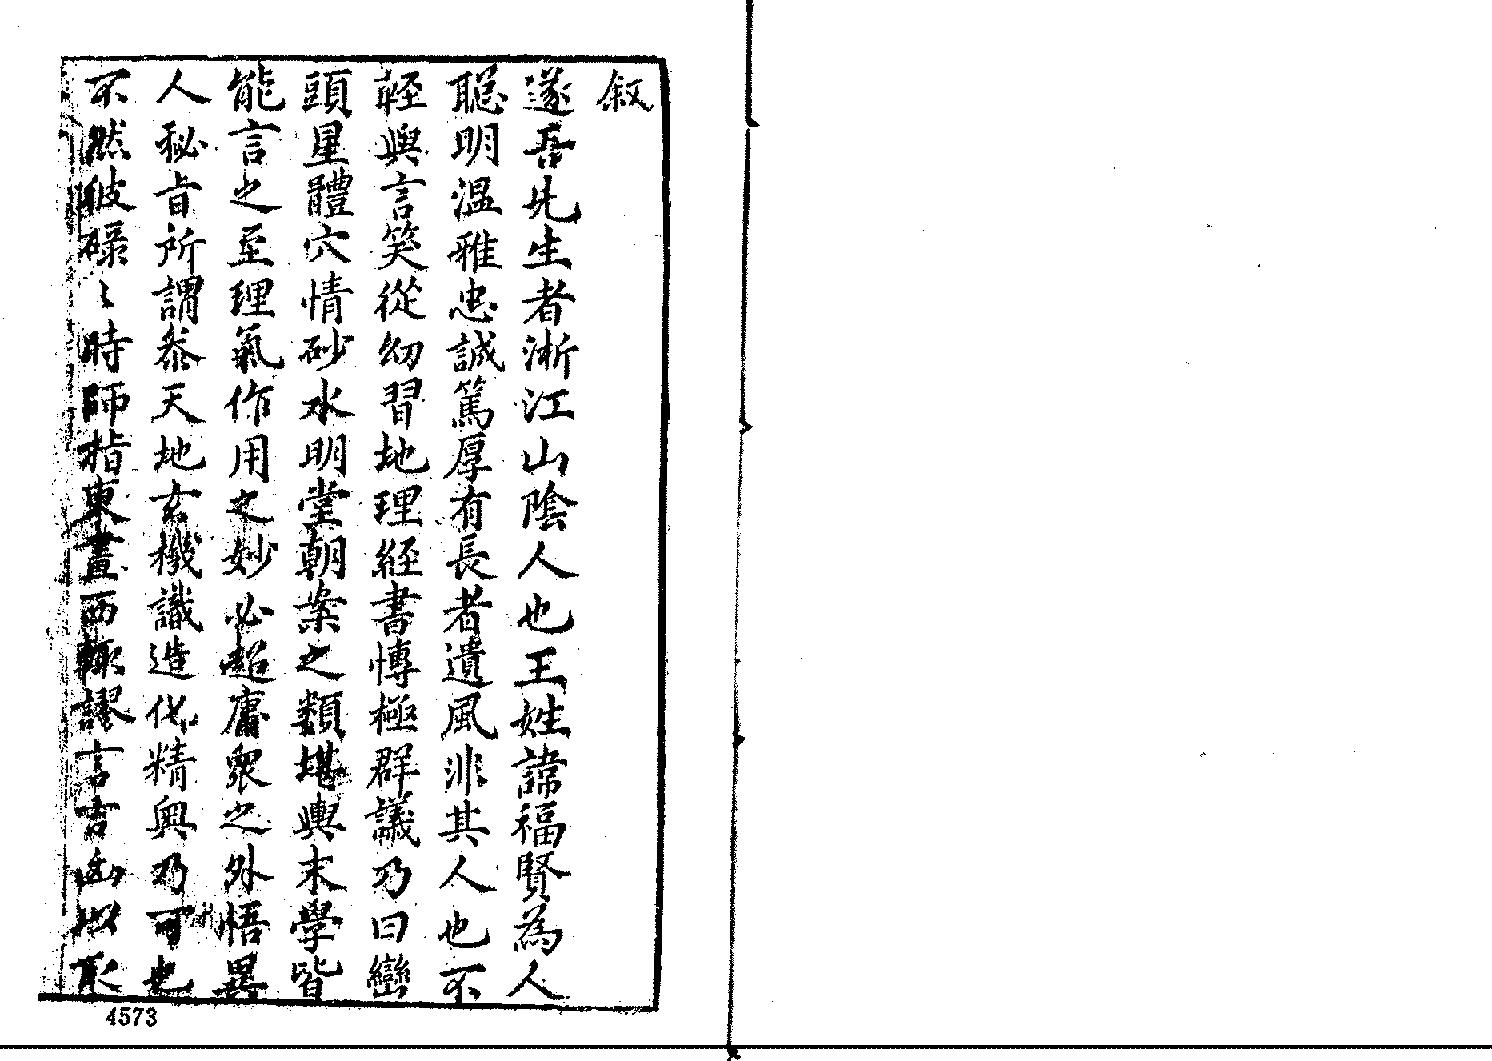 叙
遂吾先生者淅江山陰人也王姓諱福賢為人
聰明温雅忠誠篤厚有長者遺風非其人也不
輕與言笑從幼習地理經書博極群議乃曰巒
頭星體穴情砂水明堂朝案之類堪輿末學皆
能言之至理氣作用之妙必超庸衆之外悟異
人秘旨所謂叅天地玄機識造化精奥乃可也
不然彼碌〻時師指東畫西輙謬言吉凶以取
4573